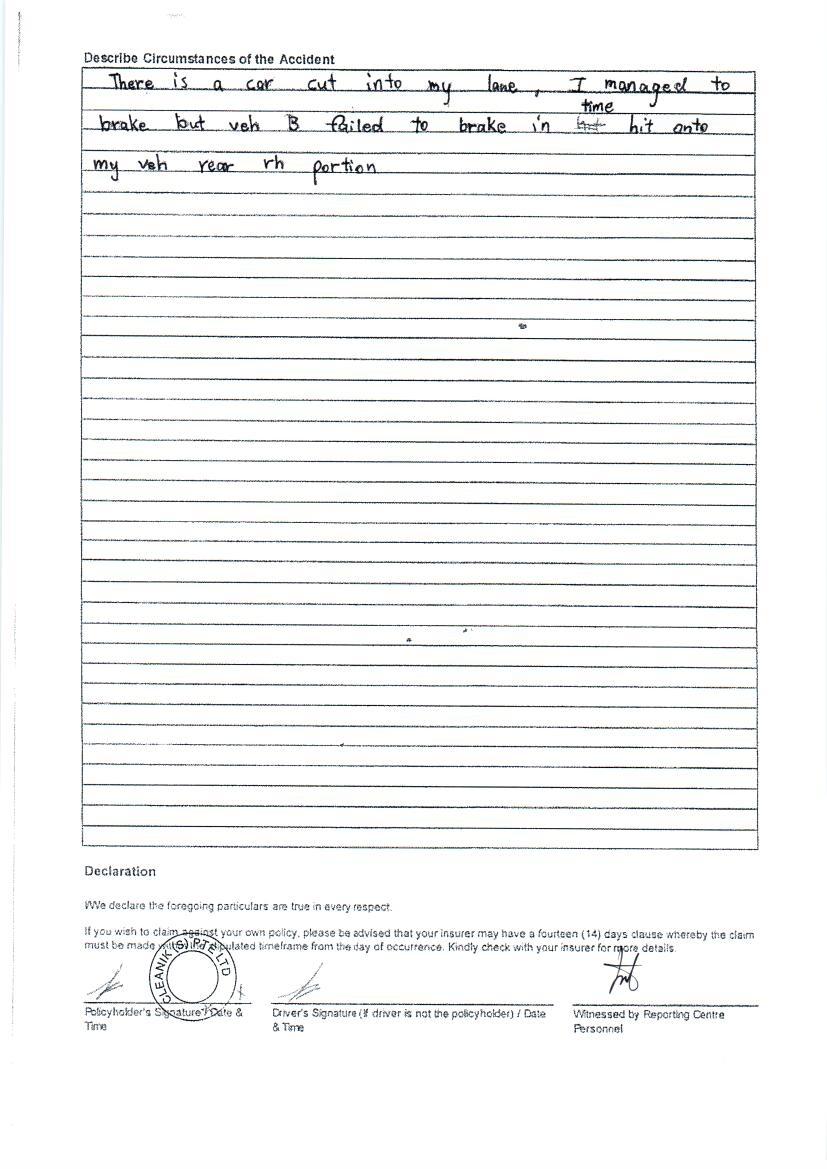 Describe Circumstances of the Accident
There is a car cut into my lane, I managed to
time
brake but veh B failed to brake in hit onto
my veh rear rh portion
Declaration
I/We declare the foregoing particulars are true in every respect.
If you wish to claim against your own policy, please be advised that your insurer may have a fourteen (14) days clause whereby the claim
must be made within the stipulated timeframe from the day of occurrence. Kindly check with your insurer for more details.
CLEANIK (S) PTE LTD
Policyholder's Signature / Date &
Time
Driver's Signature (If driver is not the policyholder) / Date
& Time
Witnessed by Reporting Centre
Personnel